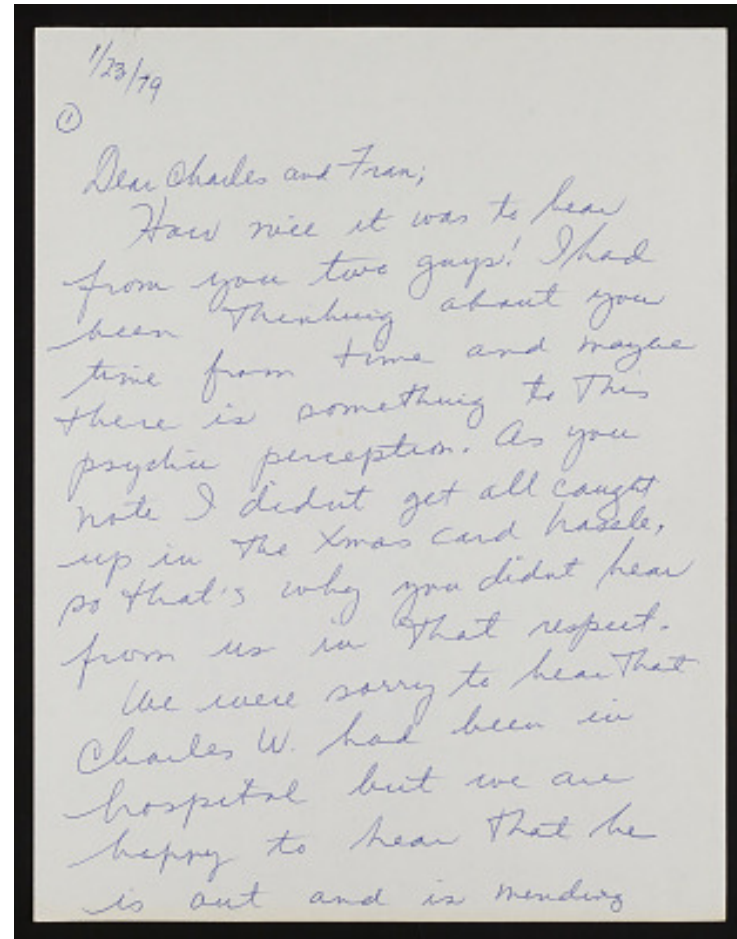 1/23/79
①
Dear Charles and Fran;
How nice it was to hear
from you two guys! I had
been thinking about you
time from time and maybe
there is something to this
psychic perception. As you
note I didnt get all caught
up in the Xmas card hassle,
so that's why you didnt hear
from us in that respect.
We were sorry to hear that
Charles W. had been in
hospital but we are
happy to hear that he
is out and is mending